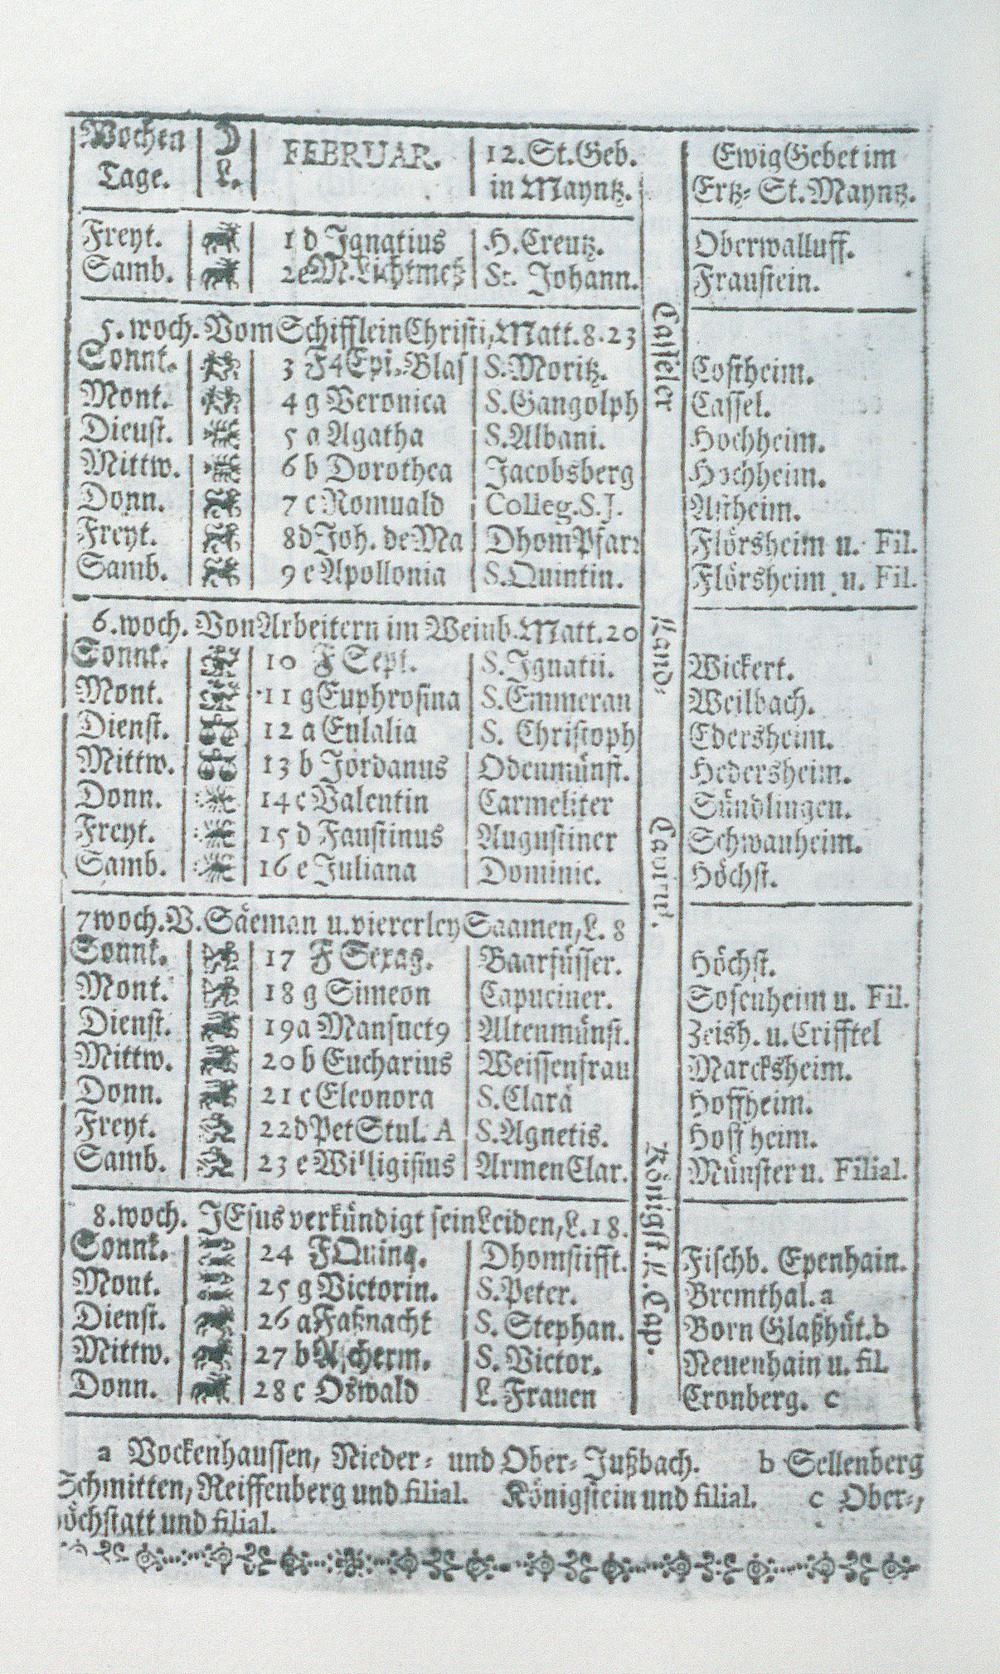 Wochen ☽ FEBRUAR. 12. St. Geb. Ewig Gebet im
Tage. L. in Mayntz. Ertz- St. Mayntz.
Freyt. 1 d Ignatius H. Creutz. Oberwalluff.
Samb. 2 e M. Lichtmeß St. Johann. Fraustein.
5. woch. Vom Schifflein Christi, Matt. 8. 23
Sonnt. 3 F 4 Epi. Blas S. Moritz. Costheim.
Mont. 4 g Veronica S. Gangolph Cassel.
Dienst. 5 a Agatha S. Albani. Hochheim.
Mittw. 6 b Dorothea Jacobsberg Hochheim.
Donn. 7 c Romuald Colleg. S. J.
Freyt. 8 d Joh. de Ma Dhom Pfarr Flörsheim u. Fil.
Samb. 9 e Apollonia S. Quintin. Flörsheim u. Fil.
6. woch. Von Arbeitern im Weinb. Matt. 20
Sonnt. 10 F Sept. S. Ignatii. Wickert.
Mont. 11 g Euphrosina S. Emmeran Weilbach.
Dienst. 12 a Eulalia S. Christoph Edersheim.
Mittw. 13 b Jordanus Odenmünst. Hedersheim.
Donn. 14 c Valentin Carmeliter Sündlingen.
Freyt. 15 d Faustinus Augustiner Schwanheim.
Samb. 16 e Juliana Dominic. Höchst.
7 woch. V. Säeman u. viererley Saamen, L. 8
Sonnt. 17 F Sexag. Baarfüsser. Höchst.
Mont. 18 g Simeon Capuciner. Sosenheim u. Fil.
Dienst. 19 a Mansuet9 Altenmünst. Zeish. u. Crifftel
Mittw. 20 b Eucharius Weissenfrau Marcksheim.
Donn. 21 c Eleonora S. Clarä Hoffheim.
Freyt. 22 d Pet Stul. A S. Agnetis. Hoffheim.
Samb. 23 e Willigisius Armen Clar. Münster u. Filial.
8. woch. JEsus verkündigt sein Leiden, L. 18.
Sonnt. 24 F Quinq. Dhomstifft. Fischb. Epenhain.
Mont. 25 g Victorin. S. Peter. Bremthal. a
Dienst. 26 a Faßnacht S. Stephan. Born Glaßhüt. b
Mittw. 27 b Ascherm. S. Victor. Neuenhain u. fil.
Donn. 28 c Oswald L. Frauen Cronberg. c
Casseler
Land-
Capitul.
Königst. L. Cap.
a Vockenhaussen, Nieder- und Ober- Jußbach. b Sellenberg
Schmitten, Reiffenberg und filial. Königstein und filial. c Ober-,
höchstatt und filial.